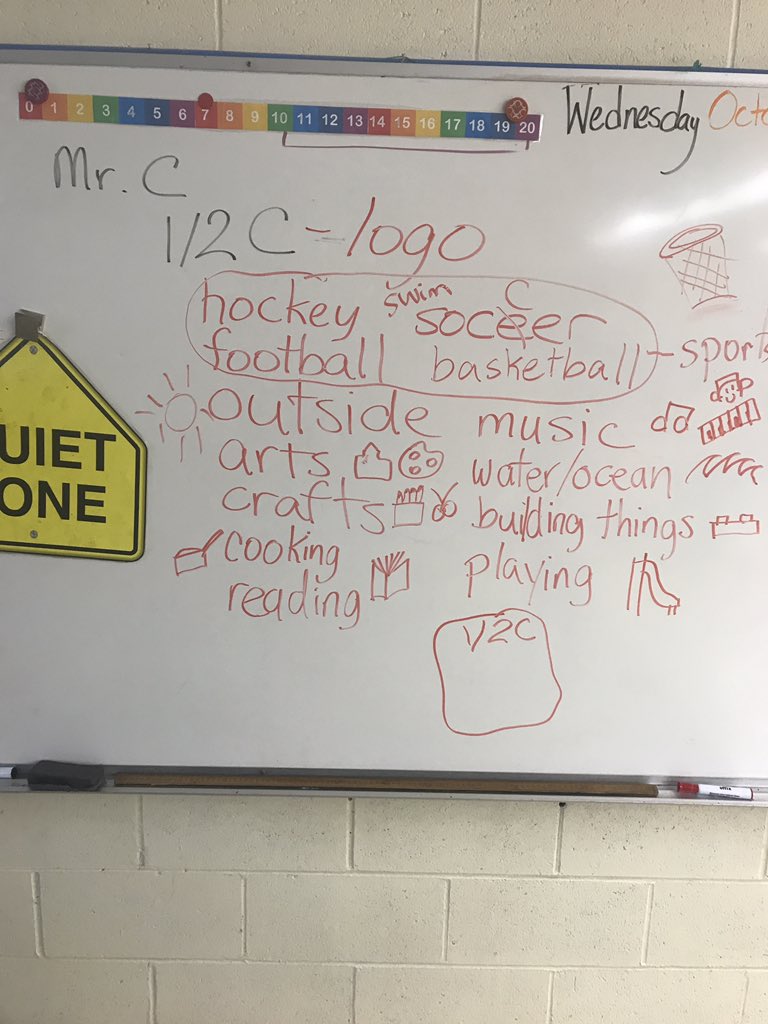 0 1 2 3 4 5 6 7 8 9 10 11 12 13 14 15 16 17 18 19 20
Wednesday Octo
Mr. C
1/2 C - logo
hockey swim soccer
football basketball - sports
outside music
arts water/ocean
crafts building things
cooking playing
reading
1/2C
UIET
ONE